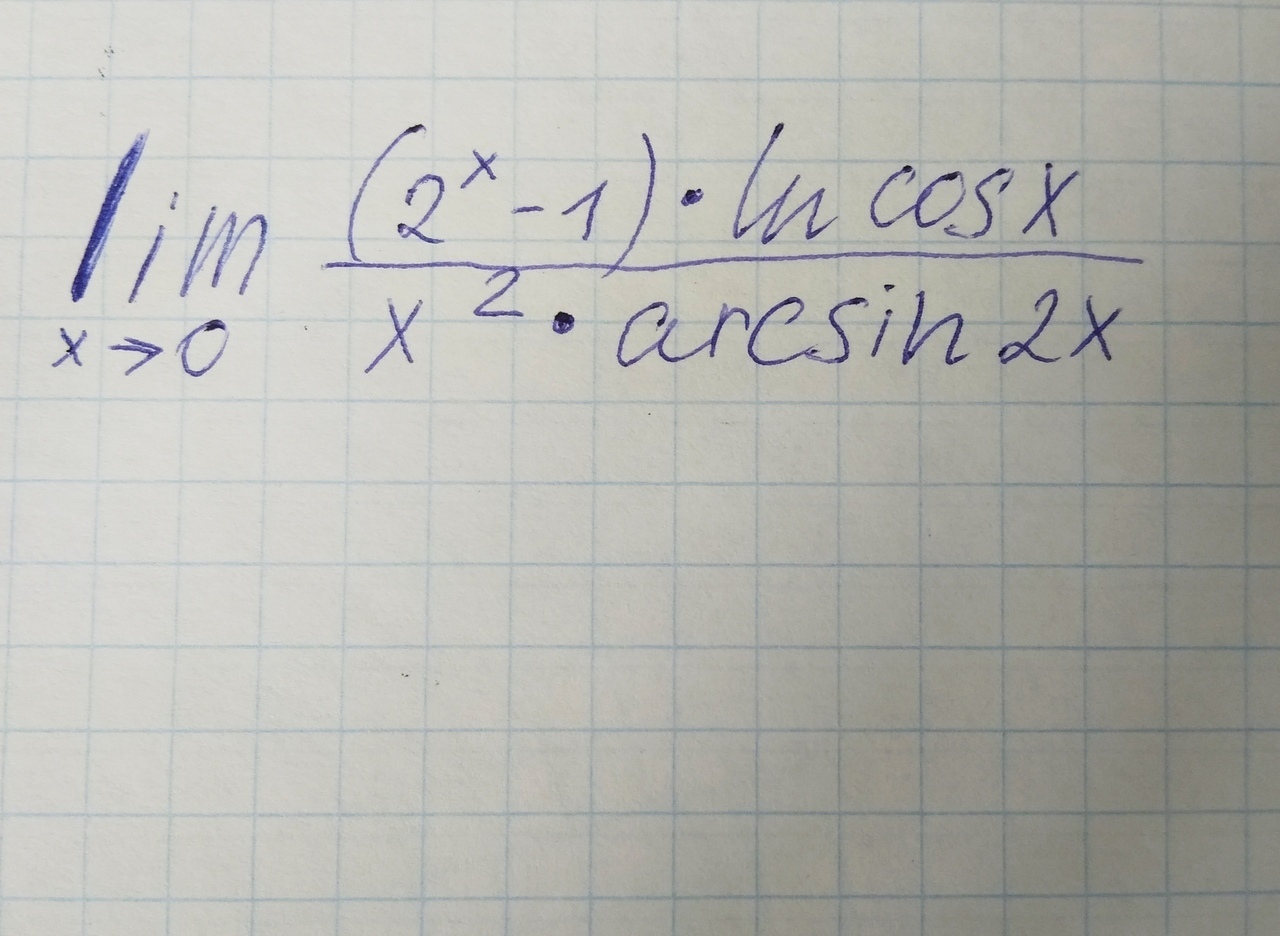 lim (2^x - 1) · ln cos x
x→0 x^2 · arcsin 2x